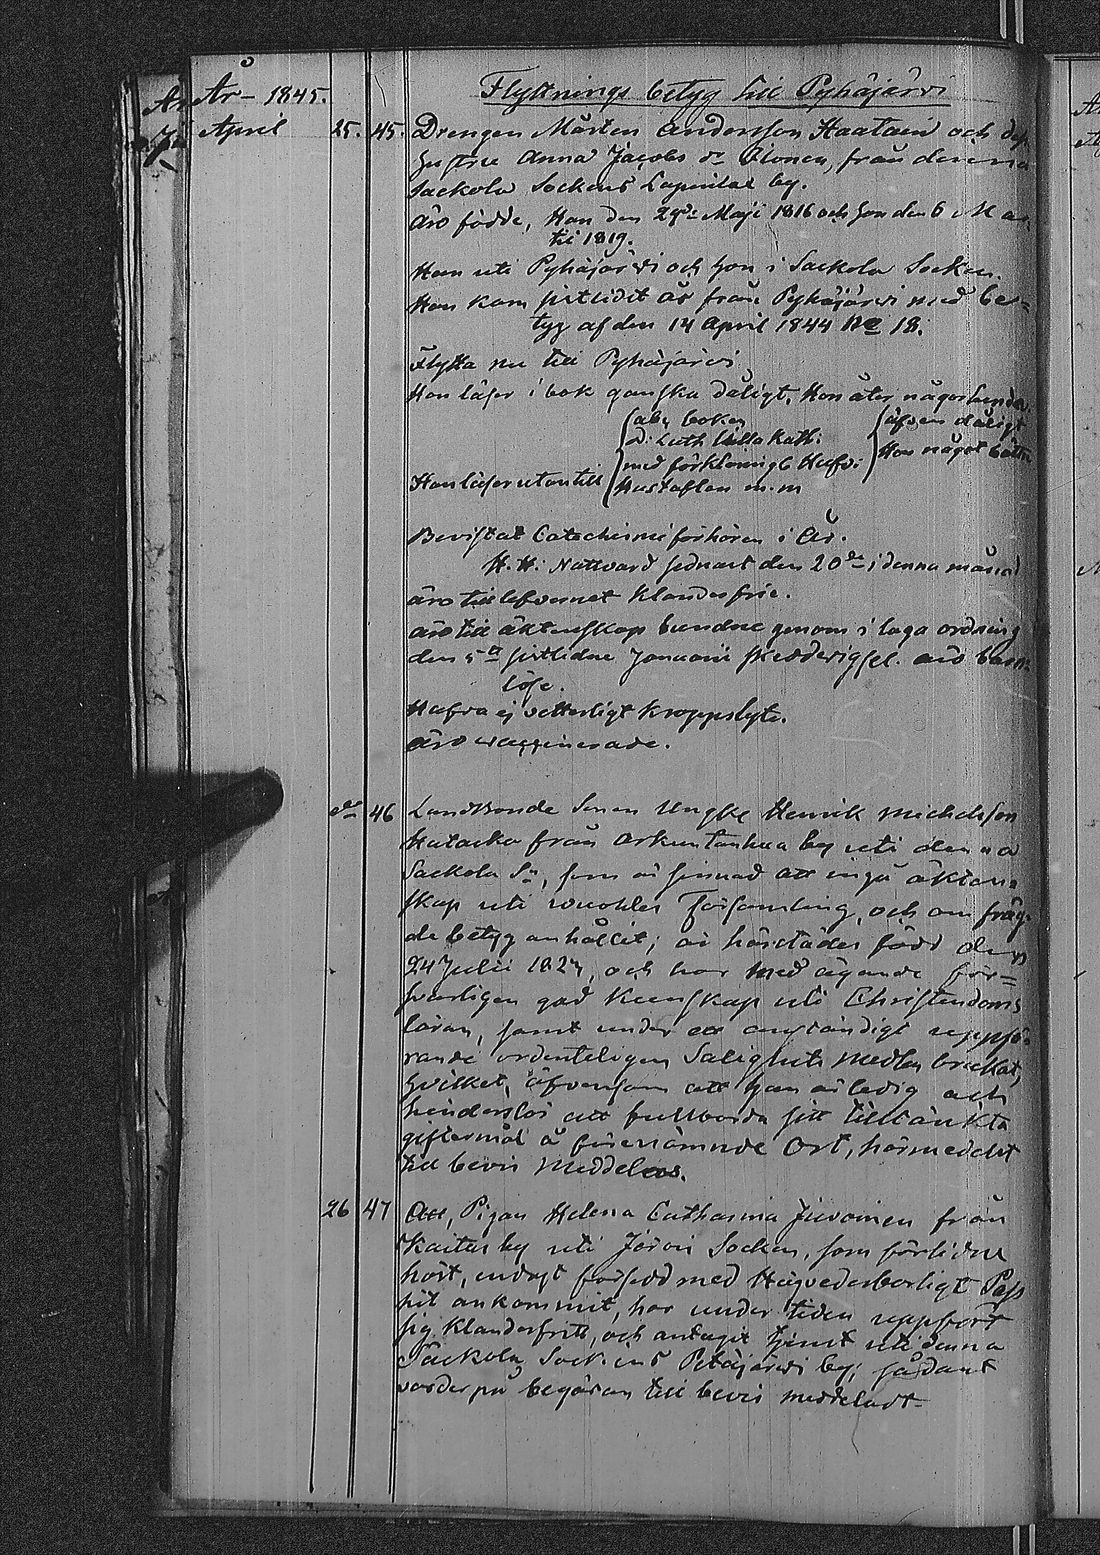 År 1845.
Flyttnings betyg till Pyhäjärvi
April 25. 45. Drengen Mårten Andersson Haatain och
Hustru Anna Jacobs dr från denna
Sackola Sockens Lapinlax by.
äro födde, Han den Maji 1816 och hon den 6 Mar
tii 1819.
Han uti Pyhäjärvi och hon i Sackola Socken.
Han kom sistlidit år från Pyhäjärvi med be=
tyg af den 14 April 1844 No 18.
Flytta nu till Pyhäjärvi
Han läser i bok ganska dåligt, Hon åter någorlunda.
Han läser utantill
abc boken
D: Luth Lilla Kath:
med förklaring
Hustaflan m.m
äfven dåligt
Hon något bättre
Bevistat Catechismi förhören i År.
H. H. Nattvard sednast den 20de i denna månad
äro till lefvernet klanderfrie.
äro till äktenskap bundne genom i laga ordning
den 5te sistlidne Januarii skedd vigsel. äro barn=
löse.
Hafva ej vetterligt kroppslyte.
äro waccinerade.
do 46 Landbonde Sonen Ungkl Henrik Michelsson
Hatacka från Orkuntanhua by uti denna
Sackola Sn, som är sinnad att ingå äkten=
skap uti Församling, och om fräg=
de betyg anhållit; är härstädes född den
24 Julii 1824, och har med ägande för=
svarligen god kunskap uti Christendoms
läran, samt under ett anständigt uppfö=
rande ordenteligen Salighets medlen brukat,
hvilket, äfvensom att han är ledig och
hinderslös att fullborda sitt tilltänkta
giftermål å förenämnde Ort, härmedelst
till bevis meddelas.
26 47 Att, Pigan Helena Catharina från
Kaitas by uti Jorois Socken, som förlidne
höst, endast försedd med Högvederbörligt Pass
hit ankommit, har under tiden uppfört
sig klanderfritt, och antagit tjenst uti denna
Sackola Sockens Petäjärvi by; sådant
varder på begäran till bevis meddeladt